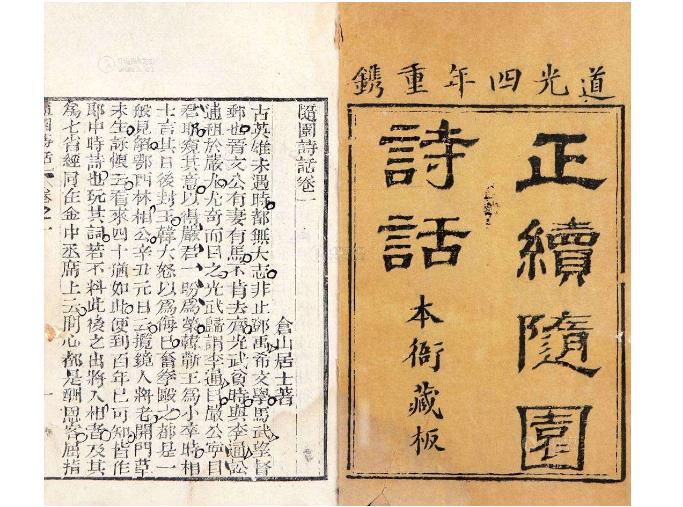 道光四年重鐫
正續隨園
詩話
本衙藏板
隨園詩話卷一
倉山居士著
古英雄未遇時都無大志非止鄧禹希文學馬武望督
郵也晉文公有妻有馬不肯去齊光武貧時與李通訟
逋租於嚴尤尤奇而目之光武歸謂李通曰嚴公寧目
君耶窺其意以得嚴君一盼爲榮韓蘄王爲小卒時相
士言其日後封王韓大怒以爲侮己奮拳毆之都是一
般見解鄂西林相公辛丑元日云攬鏡人將老開門草
未生詠懷云看來四十猶如此便到百年已可知皆作
郎中時詩也玩其詞若不料此後之出將入相者及其
爲七省經略在金中丞席上云問心都是酬恩客屈指
隨園詩話 卷之一 一